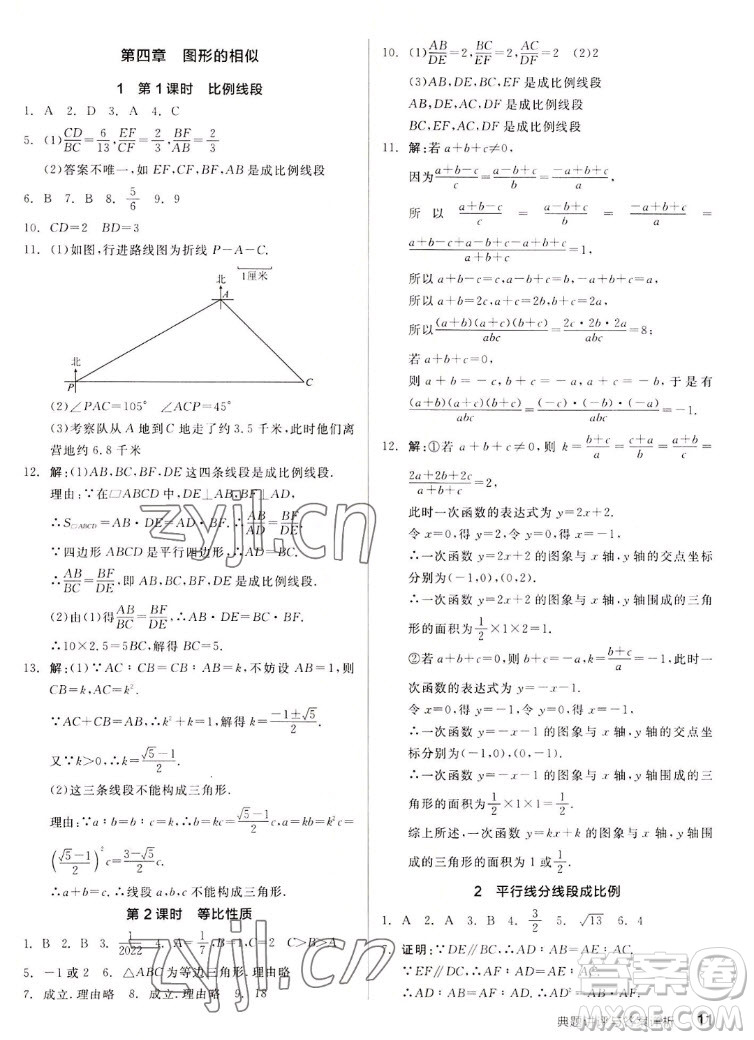 第四章　图形的相似
1　第1课时　比例线段
1. A　2. D　3. A　4. C
5. (1)CD/BC=6/13, EF/CF=2/3, BF/AB=2/3
(2)答案不唯一,如EF,CF,BF,AB是成比例线段
6. B　7. B　8. 5/6　9. 9
10. CD=2　BD=3
11. (1)如图,行进路线图为折线P-A-C.
1厘米
北
A
北
P
C
(2)∠PAC=105°　∠ACP=45°
(3)考察队从A地到C地走了约3.5千米,此时他们离
营地约6.8千米
12. 解:(1)AB,BC,BF,DE这四条线段是成比例线段.
理由:∵在□ABCD中,DE⊥AB,BF⊥AD,
∴S□ABCD=AB·DE=AD·BF,∴AB/AD=BF/DE.
∵四边形ABCD是平行四边形,∴AD=BC,
∴AB/BC=BF/DE,即AB,BC,BF,DE是成比例线段.
(2)由(1)得AB/BC=BF/DE,∴AB·DE=BC·BF,
∴10×2.5=5BC,解得BC=5.
13. 解:(1)∵AC∶CB=CB∶AB=k,不妨设AB=1,则
CB=k,AC=k².
∵AC+CB=AB,∴k²+k=1,解得k=(-1±√5)/2.
又∵k>0,∴k=(√5-1)/2.
(2)这三条线段不能构成三角形.
理由:∵a∶b=b∶c=k,c=1,∴b=(√5-1)/2,a=
((√5-1)/2)²=(3-√5)/2.
∴a+b=c,∴线段a,b,c不能构成三角形.
第2课时　等比性质
1. B　2. B　3. 1/2022　4. A=1/7　B=2　C>B>A
5. -1或2　6. △ABC为等边三角形.理由略
7. 成立.理由略　8. 成立.理由略　9. 18
10. (1)AB/DE=2　BC/EF=2　AC/DF=2　(2)2
(3)AB,DE,BC,EF是成比例线段
AB,DE,AC,DF是成比例线段
BC,EF,AC,DF是成比例线段
11. 解:若a+b+c≠0,
因为(a+b-c)/c=(a-b+c)/b=(-a+b+c)/a,
所以(a+b-c)/c=(a-b+c)/b=(-a+b+c)/a=
(a+b-c+a-b+c-a+b+c)/(a+b+c)=1,
所以a+b-c=c,a-b+c=b,-a+b+c=a,
所以a+b=2c,a+c=2b,b+c=2a,
所以(a+b)(a+c)(b+c)/abc=2c·2b·2a/abc=8;
若a+b+c=0,
则a+b=-c,b+c=-a,a+c=-b,于是有
(a+b)(a+c)(b+c)/abc=(-c)·(-b)·(-a)/abc=-1.
12. 解:①若a+b+c≠0,则k=(b+c)/a=(c+a)/b=(a+b)/c=
(2a+2b+2c)/(a+b+c)=2.
此时一次函数的表达式为y=2x+2.
令x=0,得y=2;令y=0,得x=-1,
∴一次函数y=2x+2的图象与x轴、y轴的交点坐标
分别为(-1,0),(0,2).
∴一次函数y=2x+2的图象与x轴、y轴围成的三角
形的面积为1/2×1×2=1.
②若a+b+c=0,则b+c=-a,k=(b+c)/a=-1,此时一
次函数的表达式为y=-x-1.
令x=0,得y=-1;令y=0,得x=-1,
∴一次函数y=-x-1的图象与x轴、y轴的交点坐
标分别为(-1,0),(0,-1).
∴一次函数y=-x-1的图象与x轴、y轴围成的三
角形的面积为1/2×1×1=1/2.
综上所述,一次函数y=kx+k的图象与x轴、y轴围
成的三角形的面积为1或1/2.
2　平行线分线段成比例
1. A　2. A　3. C　4. 3/2　5. √13　6. 4
7. 证明:∵DE∥BC,∴AD∶AB=AE∶AC.
∵EF∥DC,∴AF∶AD=AE∶AC,
∴AD∶AB=AF∶AD,∴AD²=AB·AF.
11
zyjl.cn
zyjl.cn
答案圈